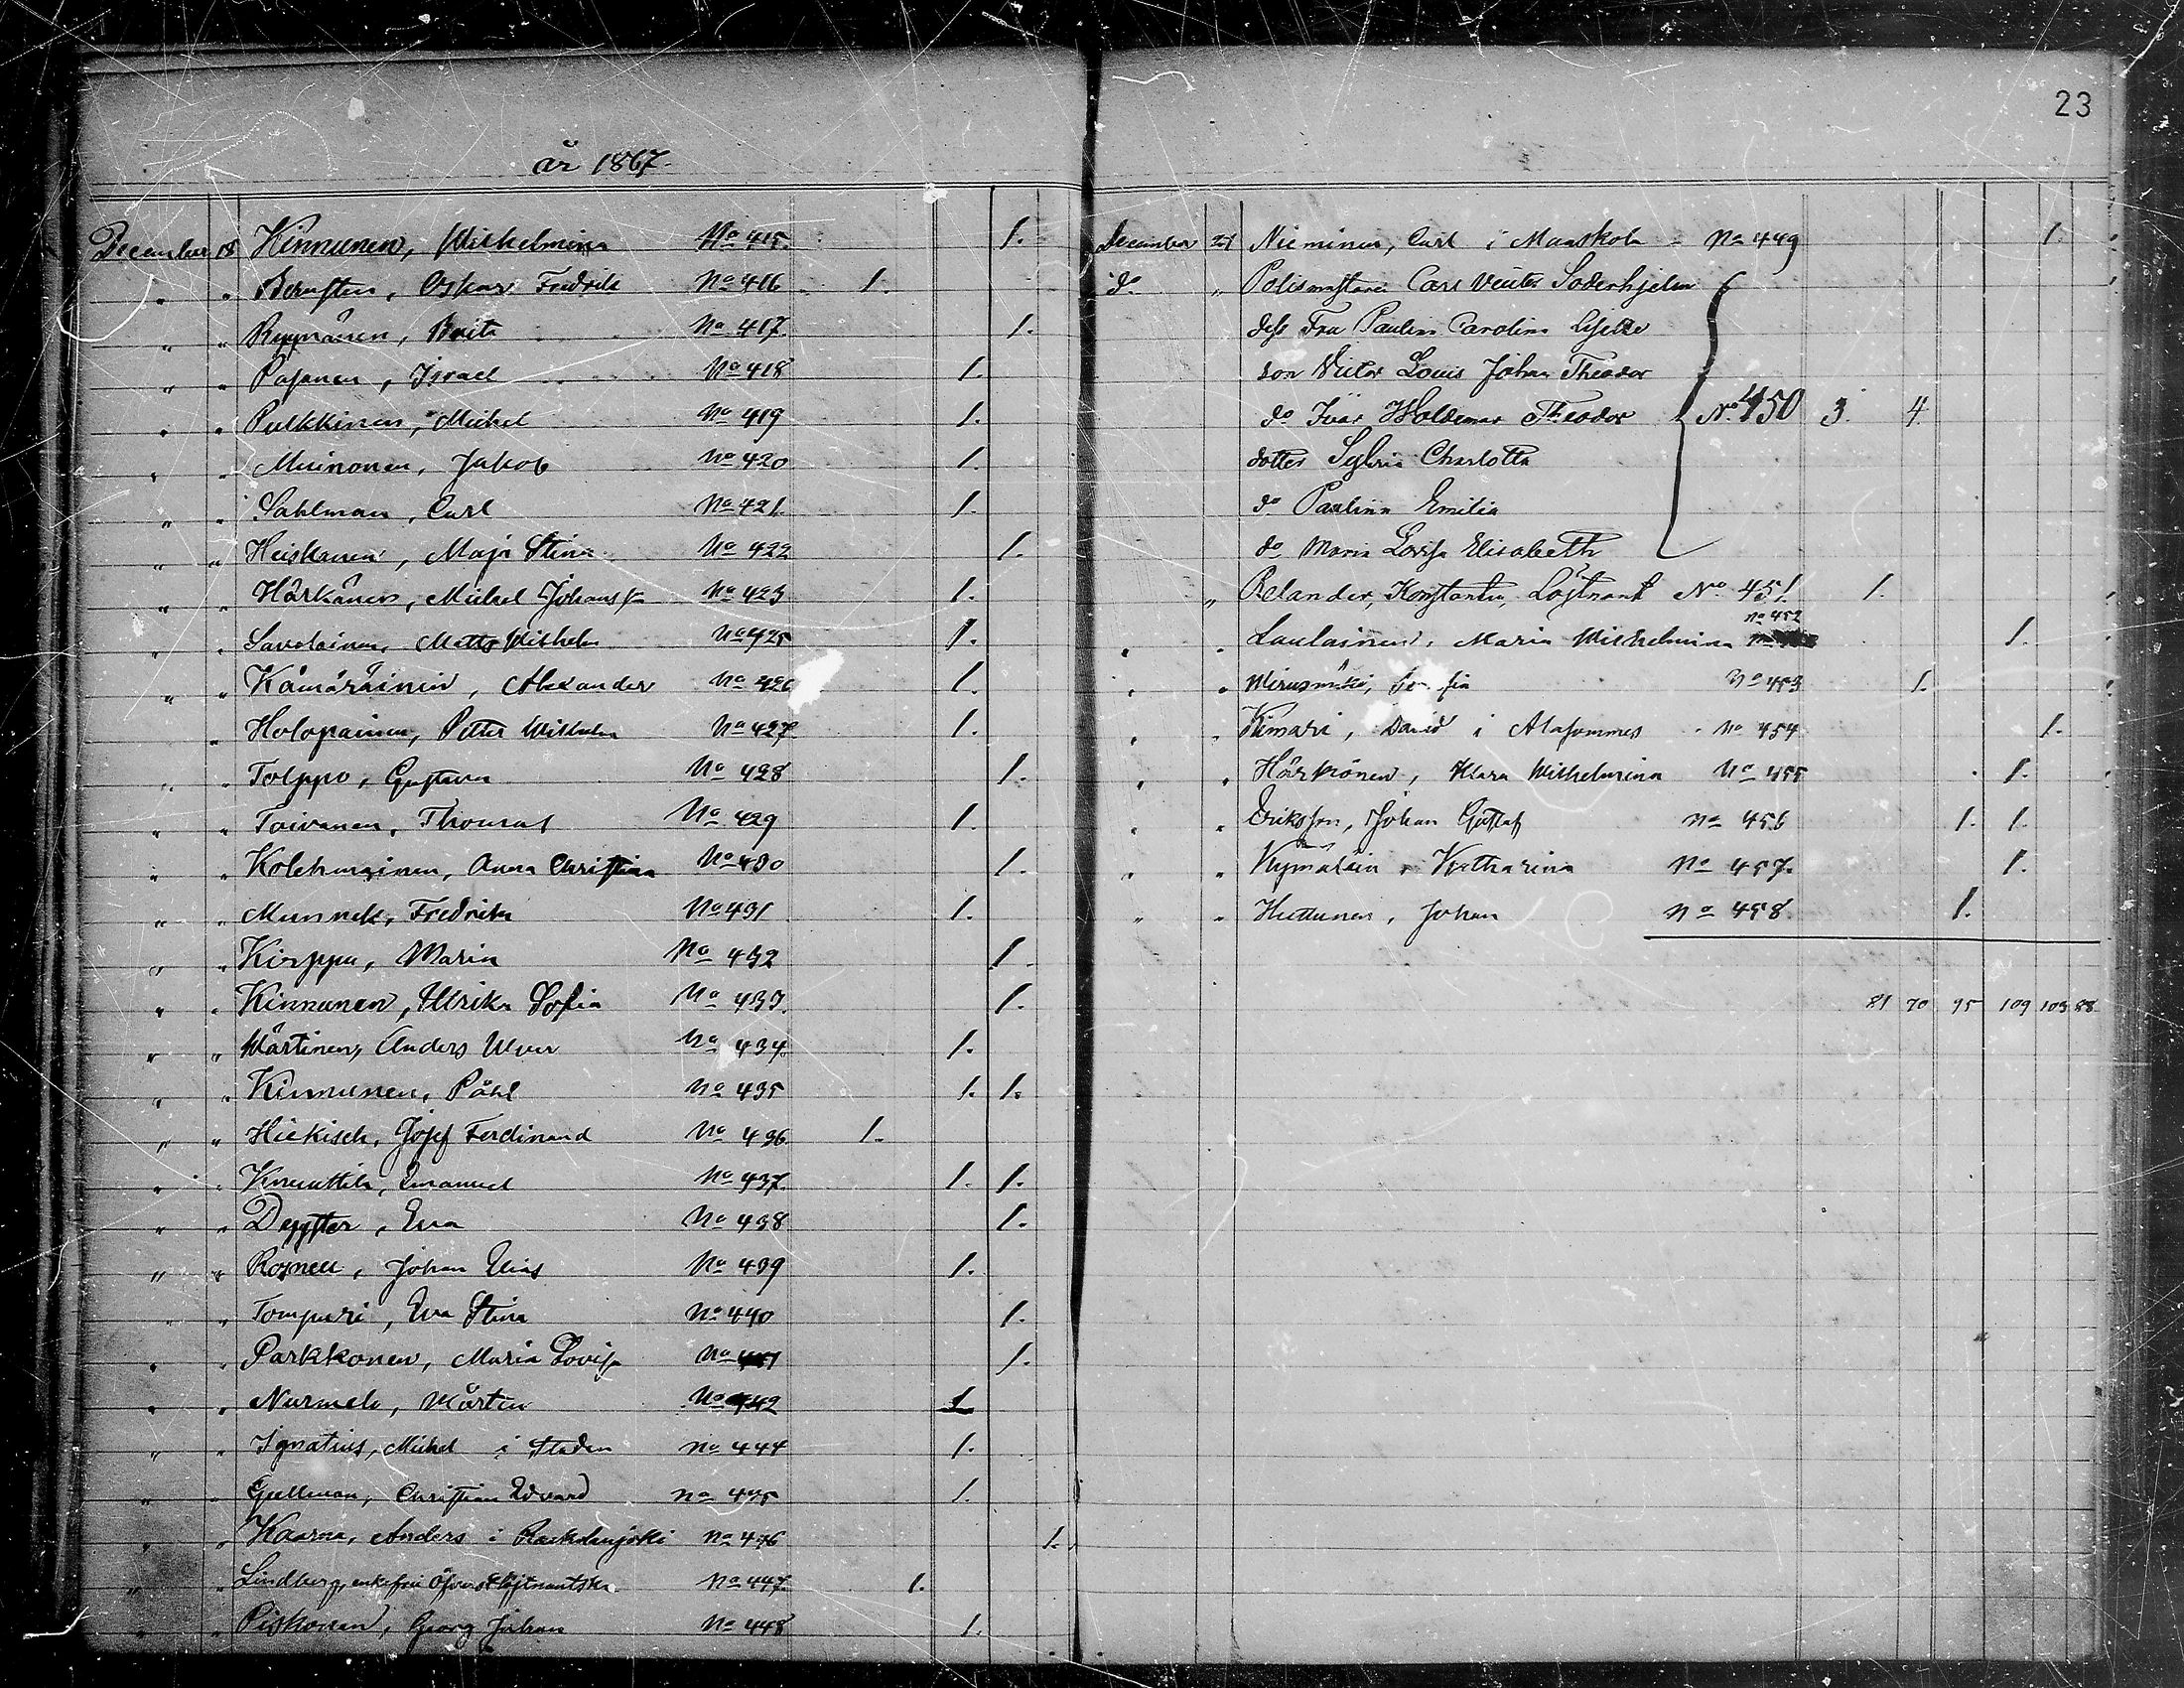 23
år 1867.
December 18 Kinnunen, Wilhelmina No 415. 1.
" " Oskar Fredrik No 416 1.
" " Ryynänen, Brita No 417. 1.
" " Pajanen, Israel No 418 1.
" " Pulkkinen, Michel No 419 1.
" " Muinonen, Jakob No 420 1.
" " Sahlman, Carl No 421. 1.
" " Heiskanen, Maja Stina No 422 1.
" " Härkänen, Michel Johansson No 423 1.
" " Savolainen, Matts Wilhelm No 425 1.
" " Kämäräinen, Alexander No 426 1.
" Holopainen, Petter Wilhelm No 427. 1.
" " Tolppo, Gustava No 428 1.
" " Toivanen, Thomas No 429 1.
" " Kolehmainen, Anna Christina No 430 1.
" " Munnck, Fredrik No 431 1.
" " Kirppu, Maria No 432 1
" " Kinnunen, Ulrika Sofia No 433. 1.
" " Martinen, Anders No 434. 1.
" " Kinnunen, Påhl No 435 1. 1.
" " Hickisch, Josef Ferdinand No 436 1.
" " Knuuttila, Emanuel No 437. 1. 1.
" " Eva No 438 1.
" " Rosnell, Johan Elias No 439 1.
" " Tompuri, Eva Stina No 440 1.
" " Parkkonen, Maria Lovisa No 441 1.
" " Nurmela, Mårten No 442 1
" " Ignatius, Michel i Staden No 444 1.
" " Gullman, Christian Edvard No 445 1.
" " Kaarna, Anders i No 446 1.
" " Lindberg, enkefru Öfverstlöjtnantska No 447. 1.
" " Piskonen, Georg Johan No 448 1.
December 21 Nieminen, Carl i Maaskola No 449 1.
do " Polismästaren Carl Victor Söderhjelm
dess Fru Paulina Carolina
son Victor Louis Johan Theodor
do Ivar Woldemar Theodor No 450 3. 4.
dotter Sylvia Charlotta
do Paulina Emilia
do Maria Lovisa Elisabeth
" Relander, Konstantin, Löjtnant No 451. 1.
No 452
" " Laulainen, Maria Wilhelmina 1.
" " Sofia No 453 1.
" " Kimari, David i No 454 1.
" " Härkönen, Klara Wilhelmina No 455 1.
" " Eriksson, Johan Gustaf No 456 1. 1.
" " Katharina No 457. 1.
" " Huttunen, Johan No 458. 1.
81 70 95 109 103 88